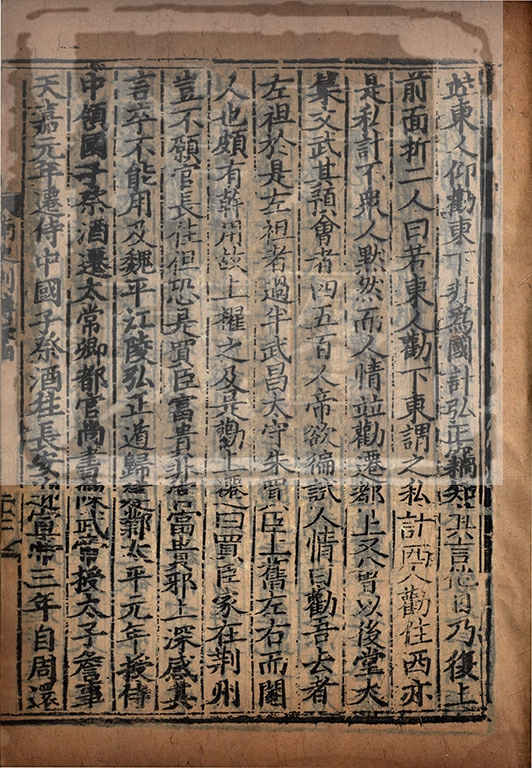 並東人仰勸東下非爲國計弘正竊知其言他日乃復上
前面折二人曰若東人勸下東謂之私計西人勸住西亦
是私計不衆人默然而人情並勸遷都上又曾以後堂大
集文武其預會者四五百人帝欲徧試人情曰勸吾去者
左袒於是左袒者過半武昌太守朱買臣上舊左右而閹
人也頗有幹用故上擢之及是勸上遷曰買臣家在荆州
豈不願官長住但恐是買臣富貴非官富貴邪上深感其
言卒不能用及魏平江陵弘正遁歸建鄴太平元年授侍
中領國子祭酒遷太常卿都官尚書陳武帝授太子詹事
天嘉元年遷侍中國子祭酒往長安迎宣帝三年自周還